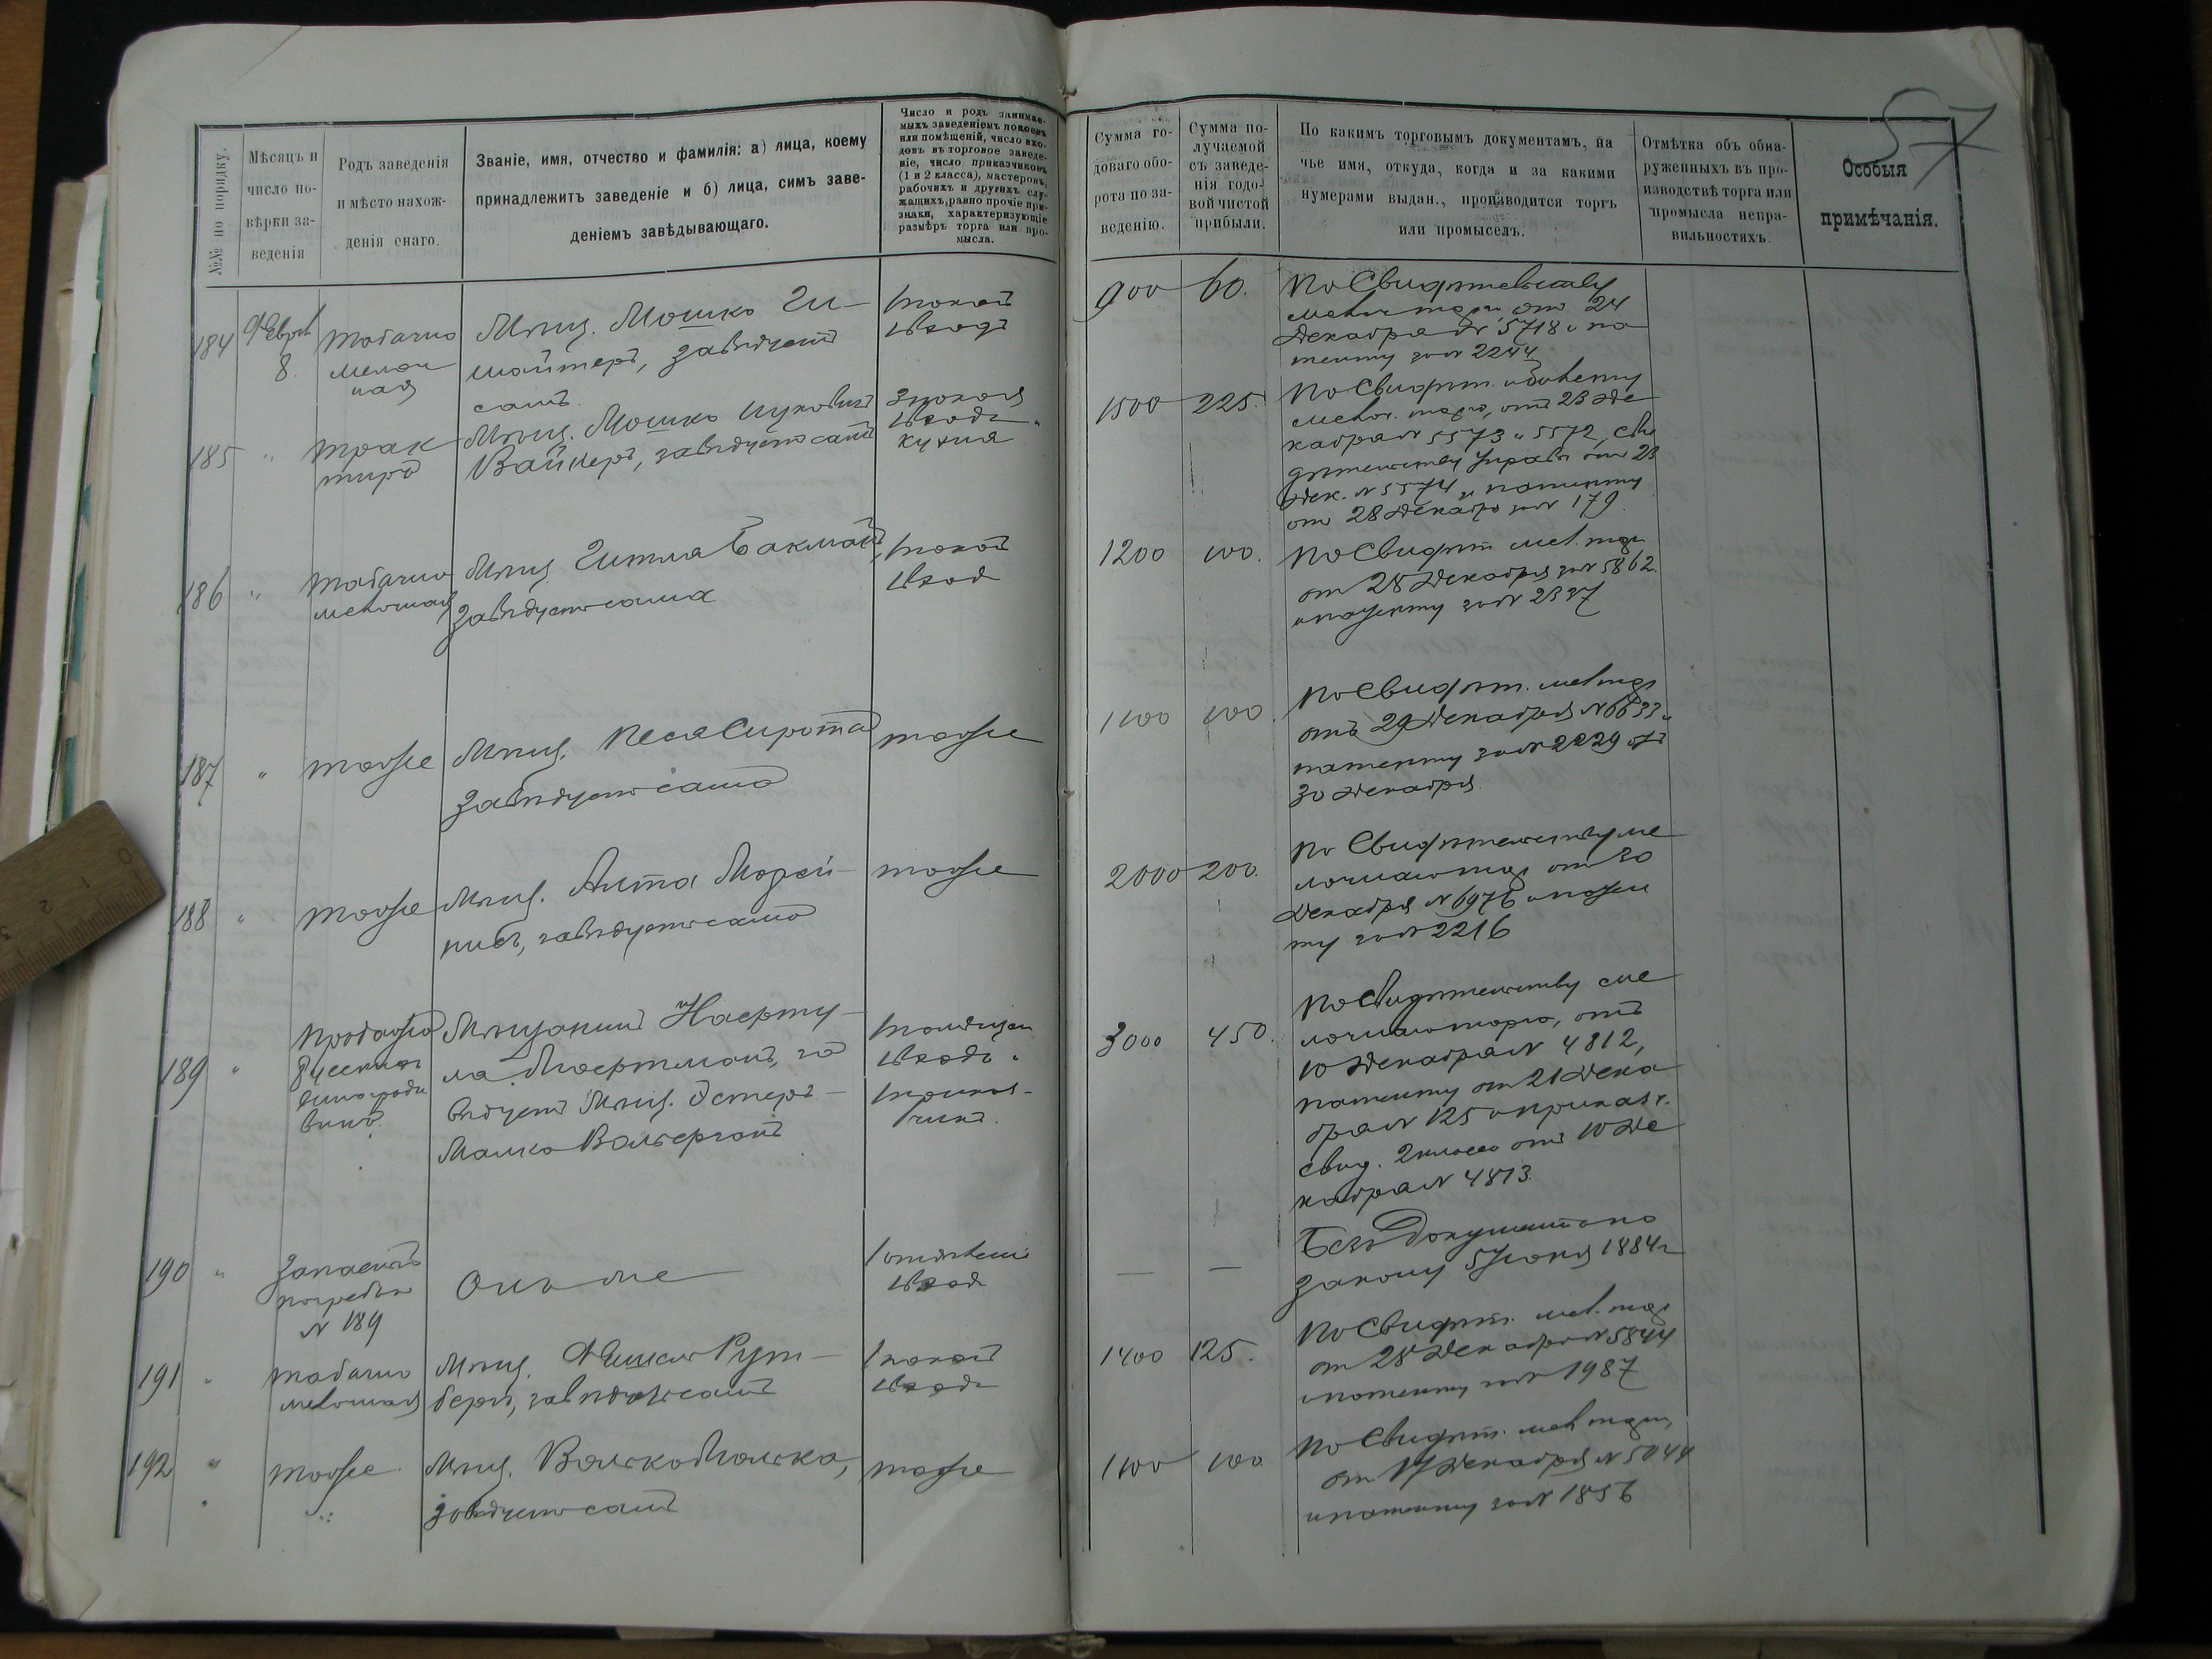 57
№№ по порядку.
Мѣсяцъ и
число по-
вѣрки за-
веденія
Родъ заведенія
и мѣсто нахож-
денія снаго.
Званіе, имя, отчество и фамилія: а) лица, коему
принадлежитъ заведеніе и б) лица, симъ заве-
деніемъ завѣдывающаго.
Число и родъ занимае-
мыхъ заведеніемъ покоевъ
или помѣщеній, число вхо-
довъ въ торговое заведе-
ніе, число приказчиковъ
(1 и 2 класса), мастеровъ,
рабочихъ и другихъ слу-
жащихъ, равно прочіе при-
знаки, характеризующіе
размѣръ торга или про-
мысла.
Сумма го-
доваго обо-
рота по за-
веденію.
Сумма по-
лучаемой
съ заведе-
нія годо-
вой чистой
прибыли.
По какимъ торговымъ документамъ, на
чье имя, откуда, когда и за какими
нумерами выдан., производится торгъ
или промыселъ.
Отмѣтка объ обна-
руженныхъ въ про-
изводствѣ торга или
промысла непра-
вильностяхъ.
Особыя
примѣчанія.
184
8.
Табачно
мелоч
ная
Мѣщ. Мошко Ги-
шойтеръ, завѣдуетъ
самъ
1 покой
1 входъ
900
60.
По Свидѣтельству
мелоч торг. отъ 24
Декабря № 5718 и па
тенту за № 2244
185
"
Трак
тиръ
Мѣщ. Мошко Ицковичъ
Вайнеръ, завѣдуетъ самъ
3 покоя
1 входъ
кухня
1500
225.
По Свидѣт. и билету
мелоч. торг., отъ 23 Де
кабря № 5573 и 5572, сви
дѣтельству Управы отъ 23
Дек. № 5574 и патенту
от 28 Декабр за № 179.
186
"
Табачно
мелочная
Мѣщ. Гитля Бакманъ,
завѣдуетъ сама
1 покой
1 вход
1200
100.
По Свидѣт мел. торг
от 28 Декабря за № 5862.
и патенту за № 2337
187
"
тоже
Мѣщ. Песя Сирота
завѣдуетъ сама
тоже
1100
100.
По Свидѣт. мел торг
отъ 29 Декабря № 6633 и
патенту за № 2229 отъ
30 Декабря.
188
"
тоже
Мѣщ. Алта
завѣдуетъ сама
тоже
2000
200.
По Свидѣтельству ме
лочнаго торг от 30
Декабря № 6976 и патен
ту за № 2216
189
"
Продажа
Русскихъ
виноградн
винъ.
Мѣщанинъ
завѣдуетъ Мѣщ. Эстеръ-
Малка
1 входъ
1 приказ-
чикъ.
3000
450.
По Свидѣтельству ме
лочнаго торга, отъ
10 Декабря № 4812,
патенту от 21 Дека
бря № 125 и приказч.
свид. 2 класса отъ 10 Де
кабря № 4813.
190
"
Запасный
погребъ
№ 189
Онъ же
1 отдѣленіе
1 вход
—
—
Безъ Документа по
закону 5 Іюня 1884 г
191
"
Табачно
мелочная
Мѣщ. Фишель Рут-
бергъ, завѣдуетъ самъ
1 покой
1 входъ
1400
125.
По Свидѣт. мел. торг
от 28 Декабря № 5844
и патенту за № 1987
192
"
тоже
Мѣщ. Волько Полька,
завѣдуетъ самъ
тоже
1100
100
По Свидѣт. мел торг,
от 17 Декабря № 5044
и патенту за № 1856